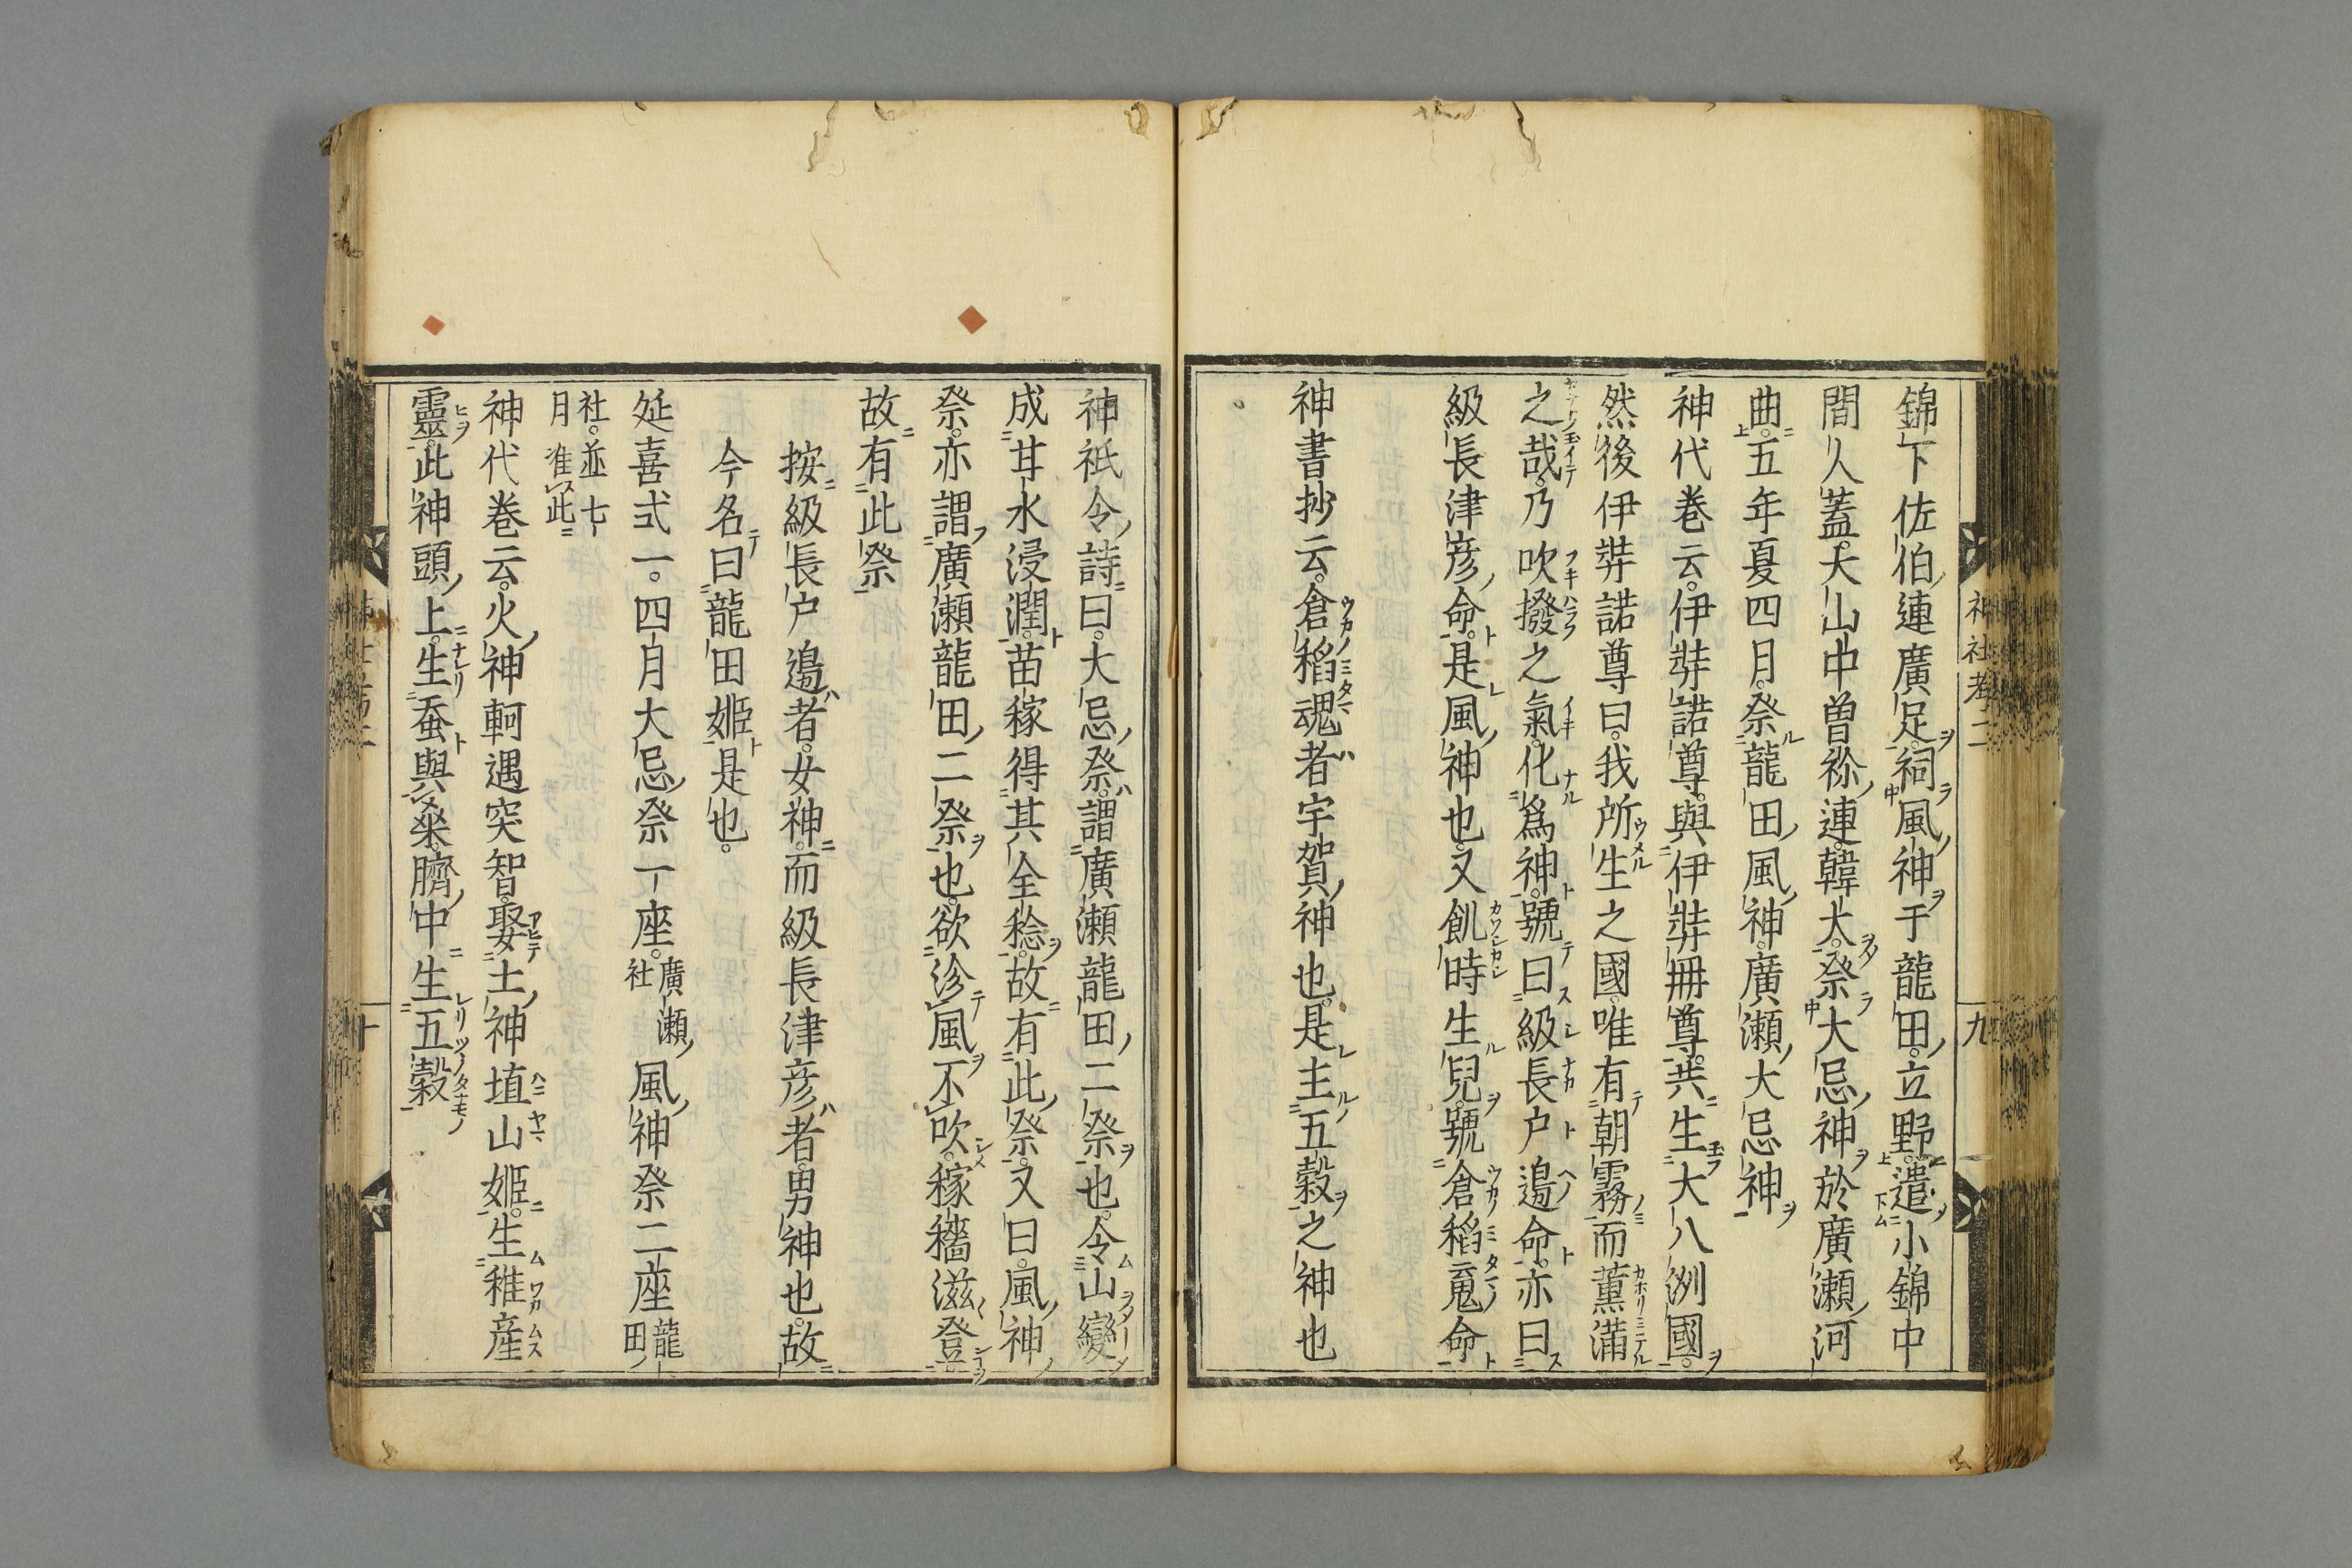 錦下佐伯連廣足祠風神于龍田立野遣小錦中
間人蓋大山中曽祢連韓犬祭大忌神於廣瀬河
曲五年夏四月祭龍田風神廣瀬大忌神
神代巻云伊弉諾尊與伊弉冊尊共生大八洲國
然後伊弉諾尊曰我所生之國唯有朝霧而薫満
之哉乃吹撥之氣化為神號曰級長戸邉命亦曰
級長津彦命是風神也又飢時生兒號倉稻䰟命
神書抄云倉稻魂者宇賀神也是主五穀之神也
神社考二
九
神祇令詩曰大忌祭謂廣瀬龍田二祭也令山變
成甘水浸潤苗稼得其全稔故有此祭又曰風神
祭亦謂廣瀬龍田二祭也欲沴風不吹稼穡滋登
故有此祭
按級長戸邉者女神而級長津彦者男神也故
今名曰龍田姫是也
延喜式一四月大忌祭一座廣瀬社風神祭二座龍田
社並七月准此
神代巻云火神軻遇突智娶土神埴山姫生稚産
靈此神頭上生蚕與桒臍中生五穀
十